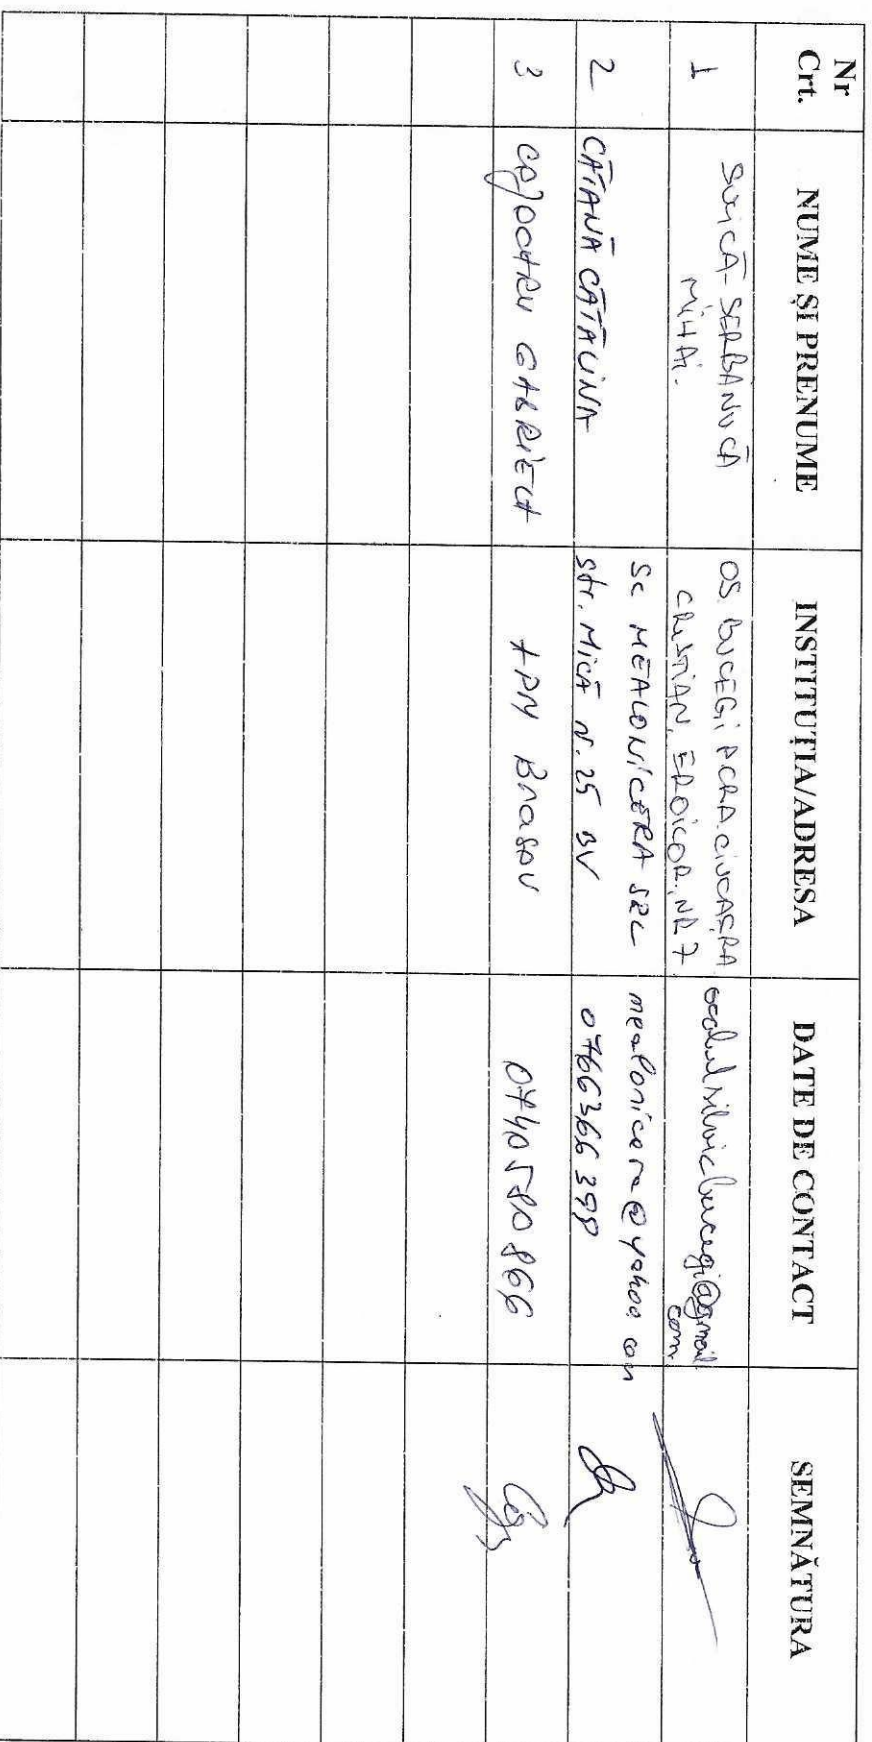 Nr Crt.
NUME ȘI PRENUME
INSTITUȚIA/ADRESA
DATE DE CONTACT
SEMNĂTURA
1
SUICĂ-SERBANUCĂ
MIHAI.
OS BUCEGI
CRISTIAN, EROILOR, NR 7
ocolulsilvicbucegi@gmail.
com
2
CĂTANĂ CĂTĂLINA
SC MEALONICERA SRL
str. MICĂ N. 25 BV
mealonicera@yahoo.com
0766366398
3
GABRIELA
APM BRASOV
0740580866